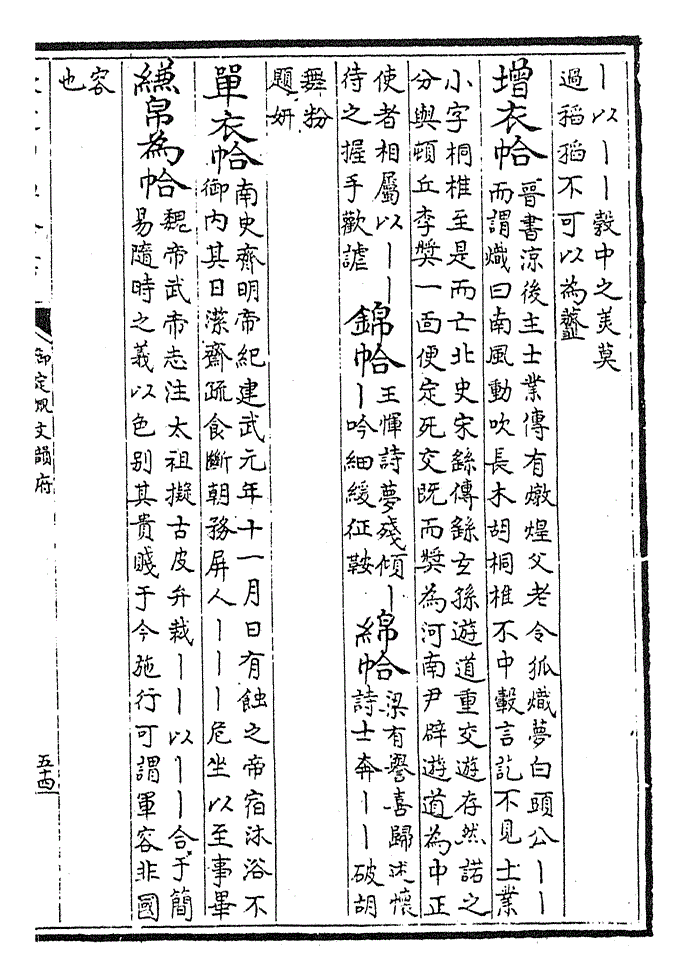 丨以丨丨穀中之美莫
過稻稻不可以為虀
增衣帢 晉書涼後主士業傳有燉煌父老令狐熾夢白頭公丨丨
而謂熾曰南風動吹長木胡桐椎不中轂言訖不見士業
小字桐椎至是而亡北史宋繇傳繇玄孫遊道重交遊存然諾之
分與頓丘李奬一面便定死交既而奬為河南尹辟遊道為中正
使者相屬以丨丨
待之握手歡謔
錦帢 王惲詩夢殘傾丨
丨吟細緩征鞍
綿帢 梁有譽喜歸述懷
詩士奔丨丨破胡
舞粉
題妍
單衣帢 南史齊明帝紀建武元年十一月日有蝕之帝宿沐浴不
御内其日潔齋疏食斷朝務屏人丨丨丨危坐以至事畢
縑帛為帢 魏帝武帝志注太祖擬古皮弁裁丨丨以丨丨合于簡
易隨時之義以色别其貴賤于今施行可謂軍容非國
容
也
御定佩文韻府
五十四